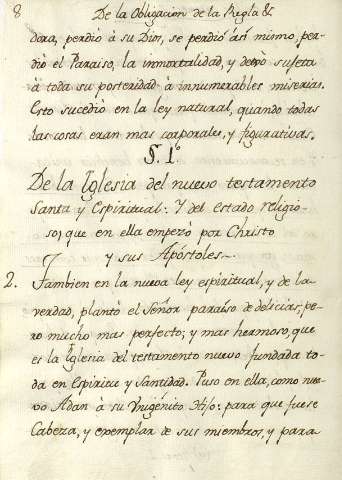 8 De la Obligacion de la Regla &
dora, perdiò à su Dios, se perdiò así mismo, per-
diò el Paraiso, la inmortalidad, y dexò sujeta
à toda su posteridad à innumerables miserias.
Esto sucediò en la ley natural, quando todas
las cosas eran mas corporales, y figurativas.
§. 1º
De la Iglesia del nuevo testamento
Santa y Espiritual: Y del estado religio-
so, que en ella empezò por Christo
y sus Apóstoles
2. Tambien en la nueva ley espiritual, y de la
verdad, plantò el Señor paraiso de delicias; pe-
ro mucho mas perfecto; y mas hermoso, que
es la Iglesia del testamento nuevo fundada to-
da en Espiritu y Santidad. Puso en ella, como nue-
vo Adan à su Unigénito Hijo: para que fuese
Cabeza, y exemplar de sus miembros, y para